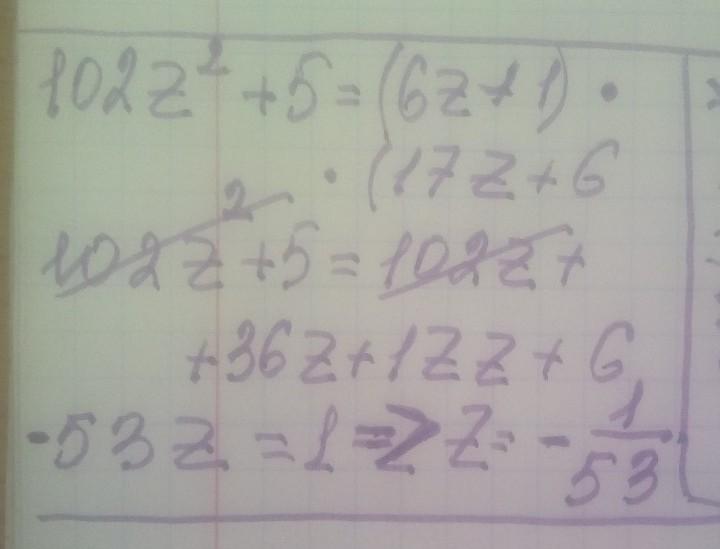 102z² + 5 = (6z + 1) ·
· (17z + 6
102z² + 5 = 102z +
+ 36z + 17z + 6
-53z = 1 => z = - 1/53